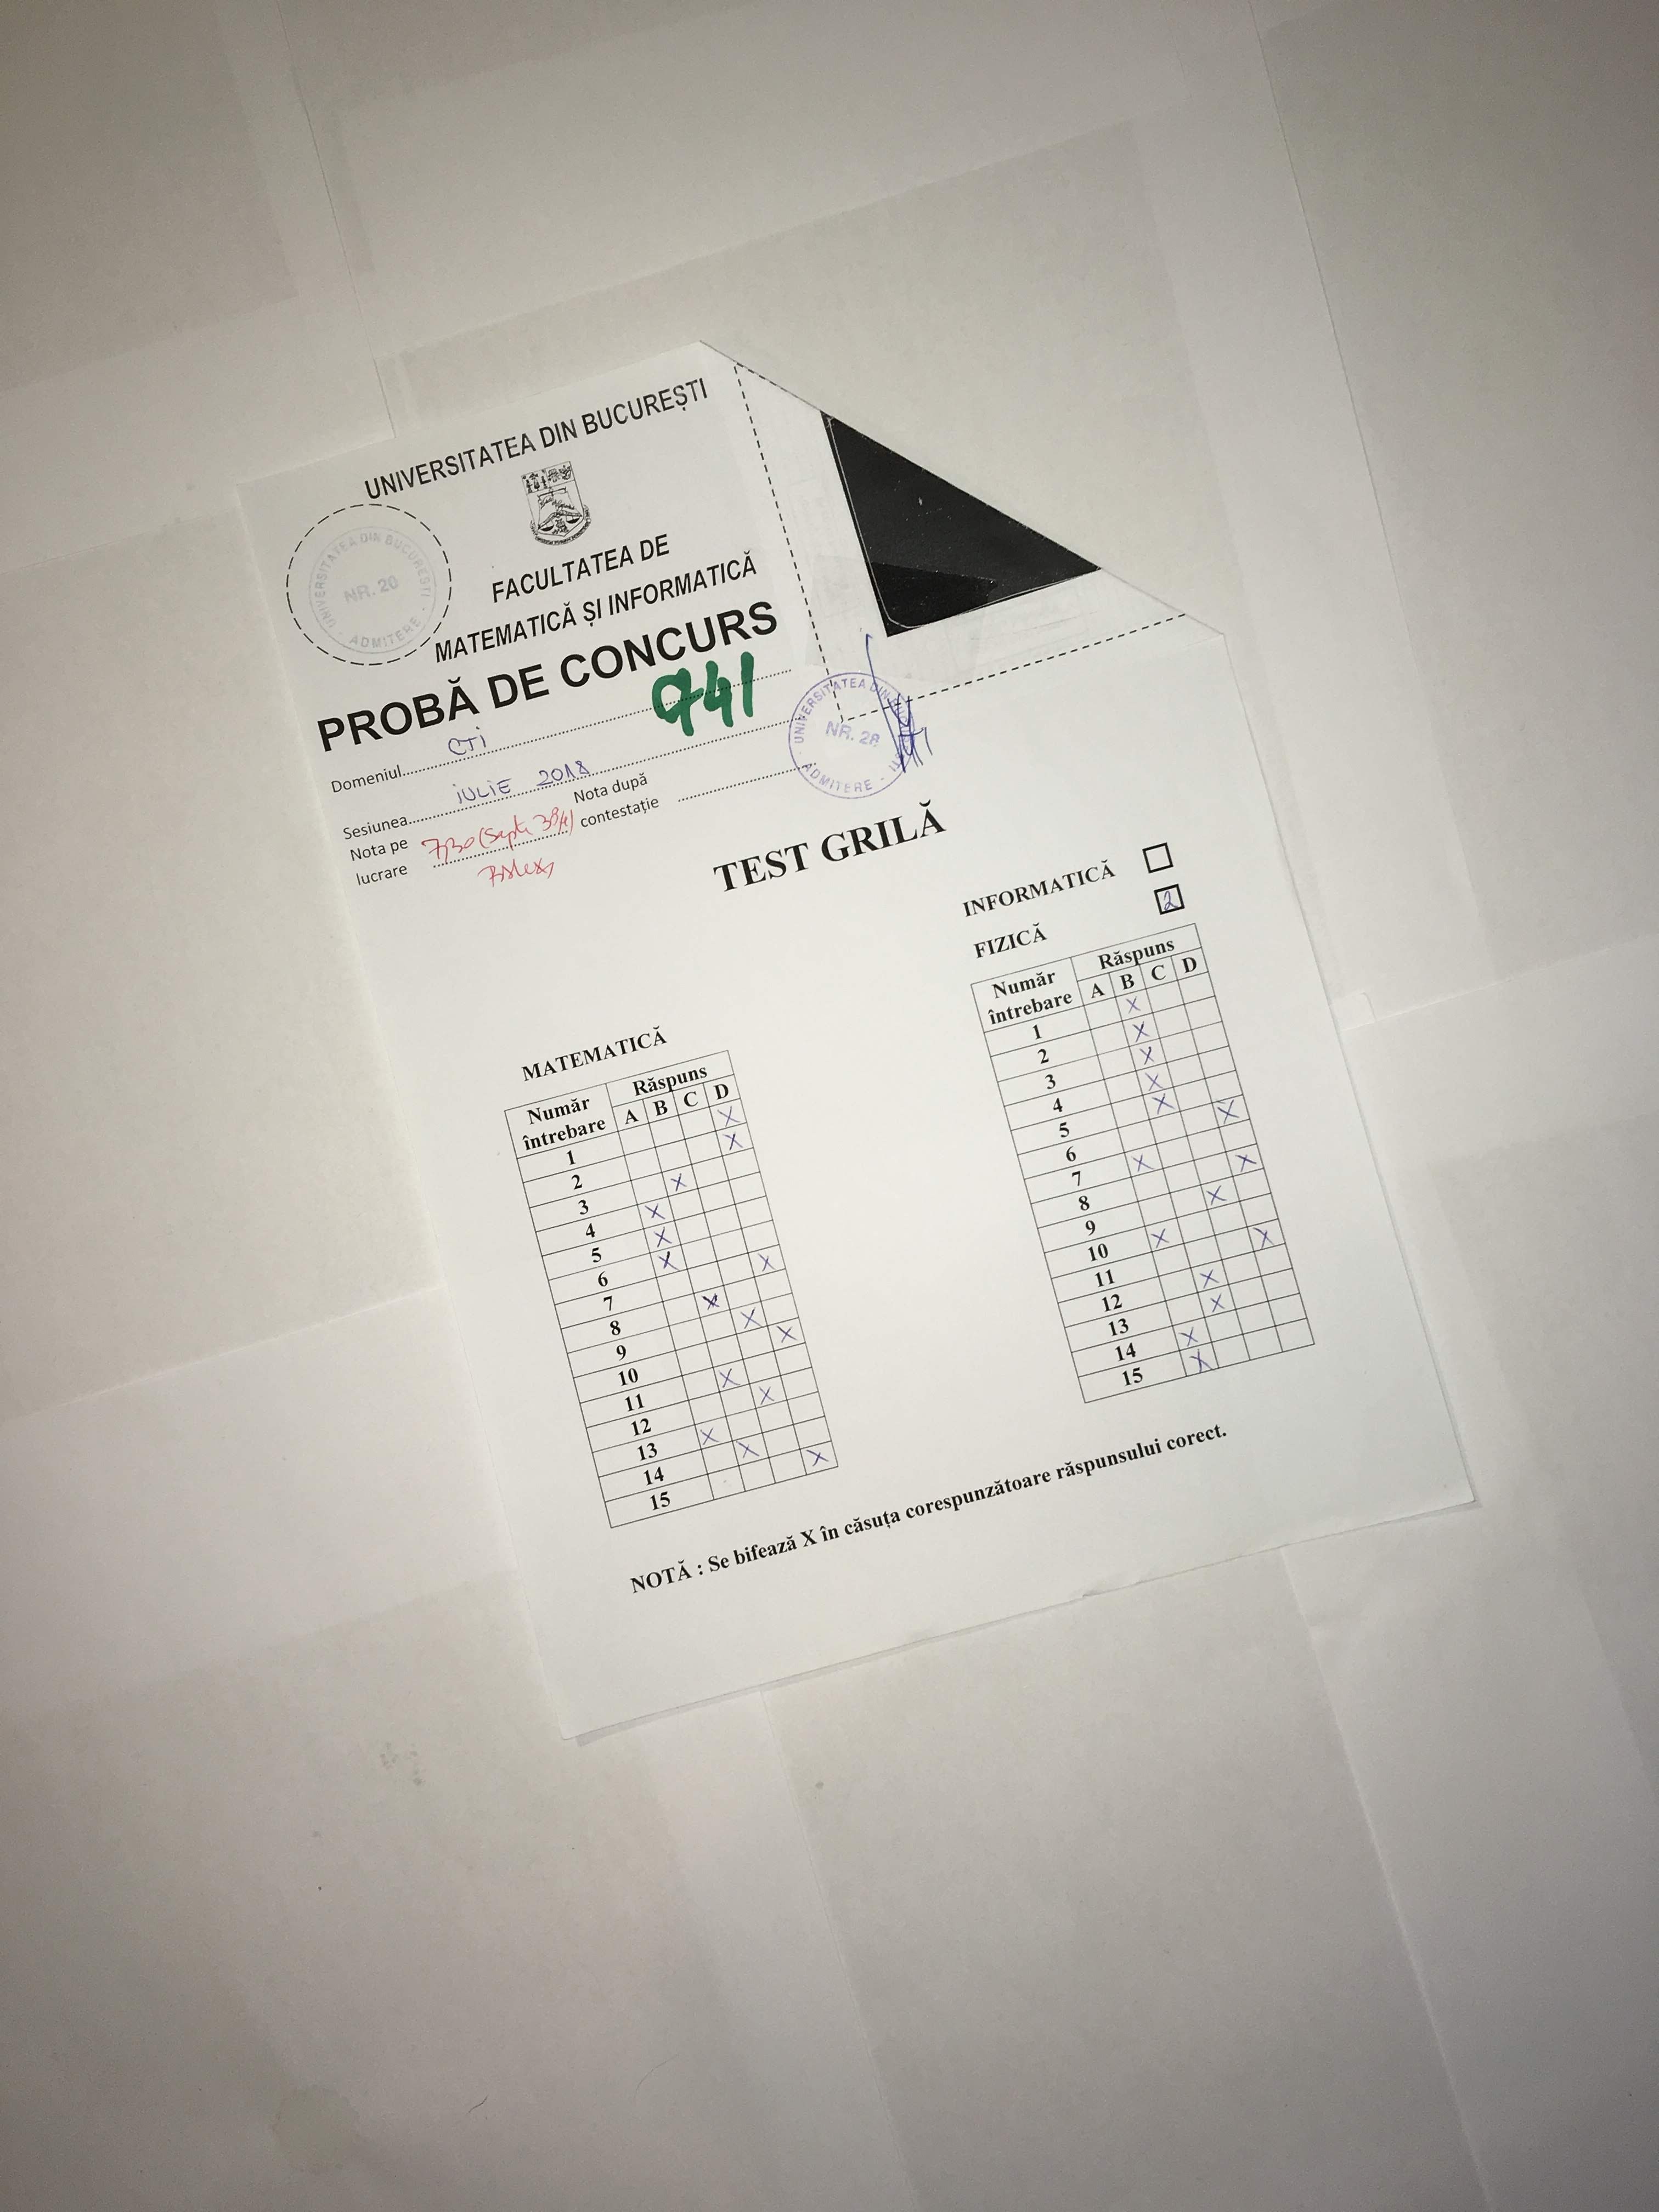 UNIVERSITATEA DIN BUCUREȘTI
UNIVERSITATEA DIN BUCUREȘTI
NR. 20
ADMITERE
FACULTATEA DE
MATEMATICĂ ȘI INFORMATICĂ
PROBĂ DE CONCURS
941
Domeniul CTI
Sesiunea IULIE 2018
Nota pe lucrare 7,30 (Șapte 30%)
Nota după contestație
UNIVERSITATEA DIN BUCUREȘTI
NR. 28
ADMITERE
TEST GRILĂ
INFORMATICĂ
FIZICĂ 2
MATEMATICĂ
Număr întrebare Răspuns
A B C D
1 X
2 X
3 X
4 X
5 X
6 X
7 X
8 X
9 X
10 X
11 X
12 X
13 X
14 X
15 X
Număr întrebare Răspuns
A B C D
1 X
2 X
3 X
4 X
5 X
6 X
7 X
8 X
9 X
10 X
11 X
12 X
13 X
14 X
15 X
NOTĂ : Se bifează X în căsuța corespunzătoare răspunsului corect.